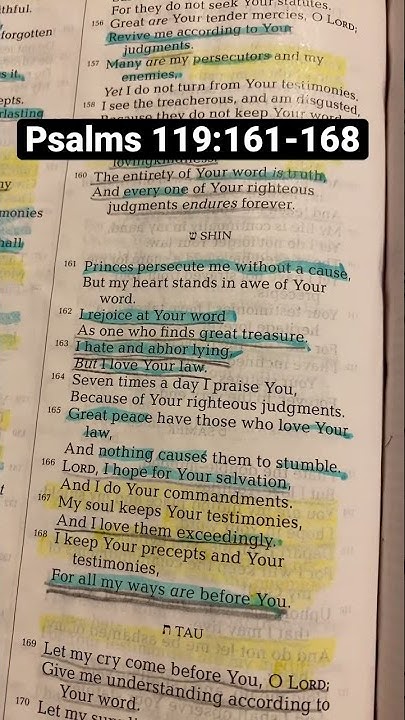 For they do not seek Your statutes.
156 Great are Your tender mercies, O LORD;
Revive me according to Your
judgments.
157 Many are my persecutors and my
enemies,
Yet I do not turn from Your testimonies.
158 I see the treacherous, and am disgusted,
Because they do not keep Your word.
Psalms 119:161-168
lovingkindness.
160 The entirety of Your word is truth,
And every one of Your righteous
judgments endures forever.
ש SHIN
161 Princes persecute me without a cause,
But my heart stands in awe of Your
word.
162 I rejoice at Your word
As one who finds great treasure.
163 I hate and abhor lying,
But I love Your law.
164 Seven times a day I praise You,
Because of Your righteous judgments.
165 Great peace have those who love Your
law,
And nothing causes them to stumble.
166 LORD, I hope for Your salvation,
And I do Your commandments.
167 My soul keeps Your testimonies,
And I love them exceedingly.
168 I keep Your precepts and Your
testimonies,
For all my ways are before You.
ת TAU
169 Let my cry come before You, O LORD;
Give me understanding according to
Your word.
170 Let my
forgotten